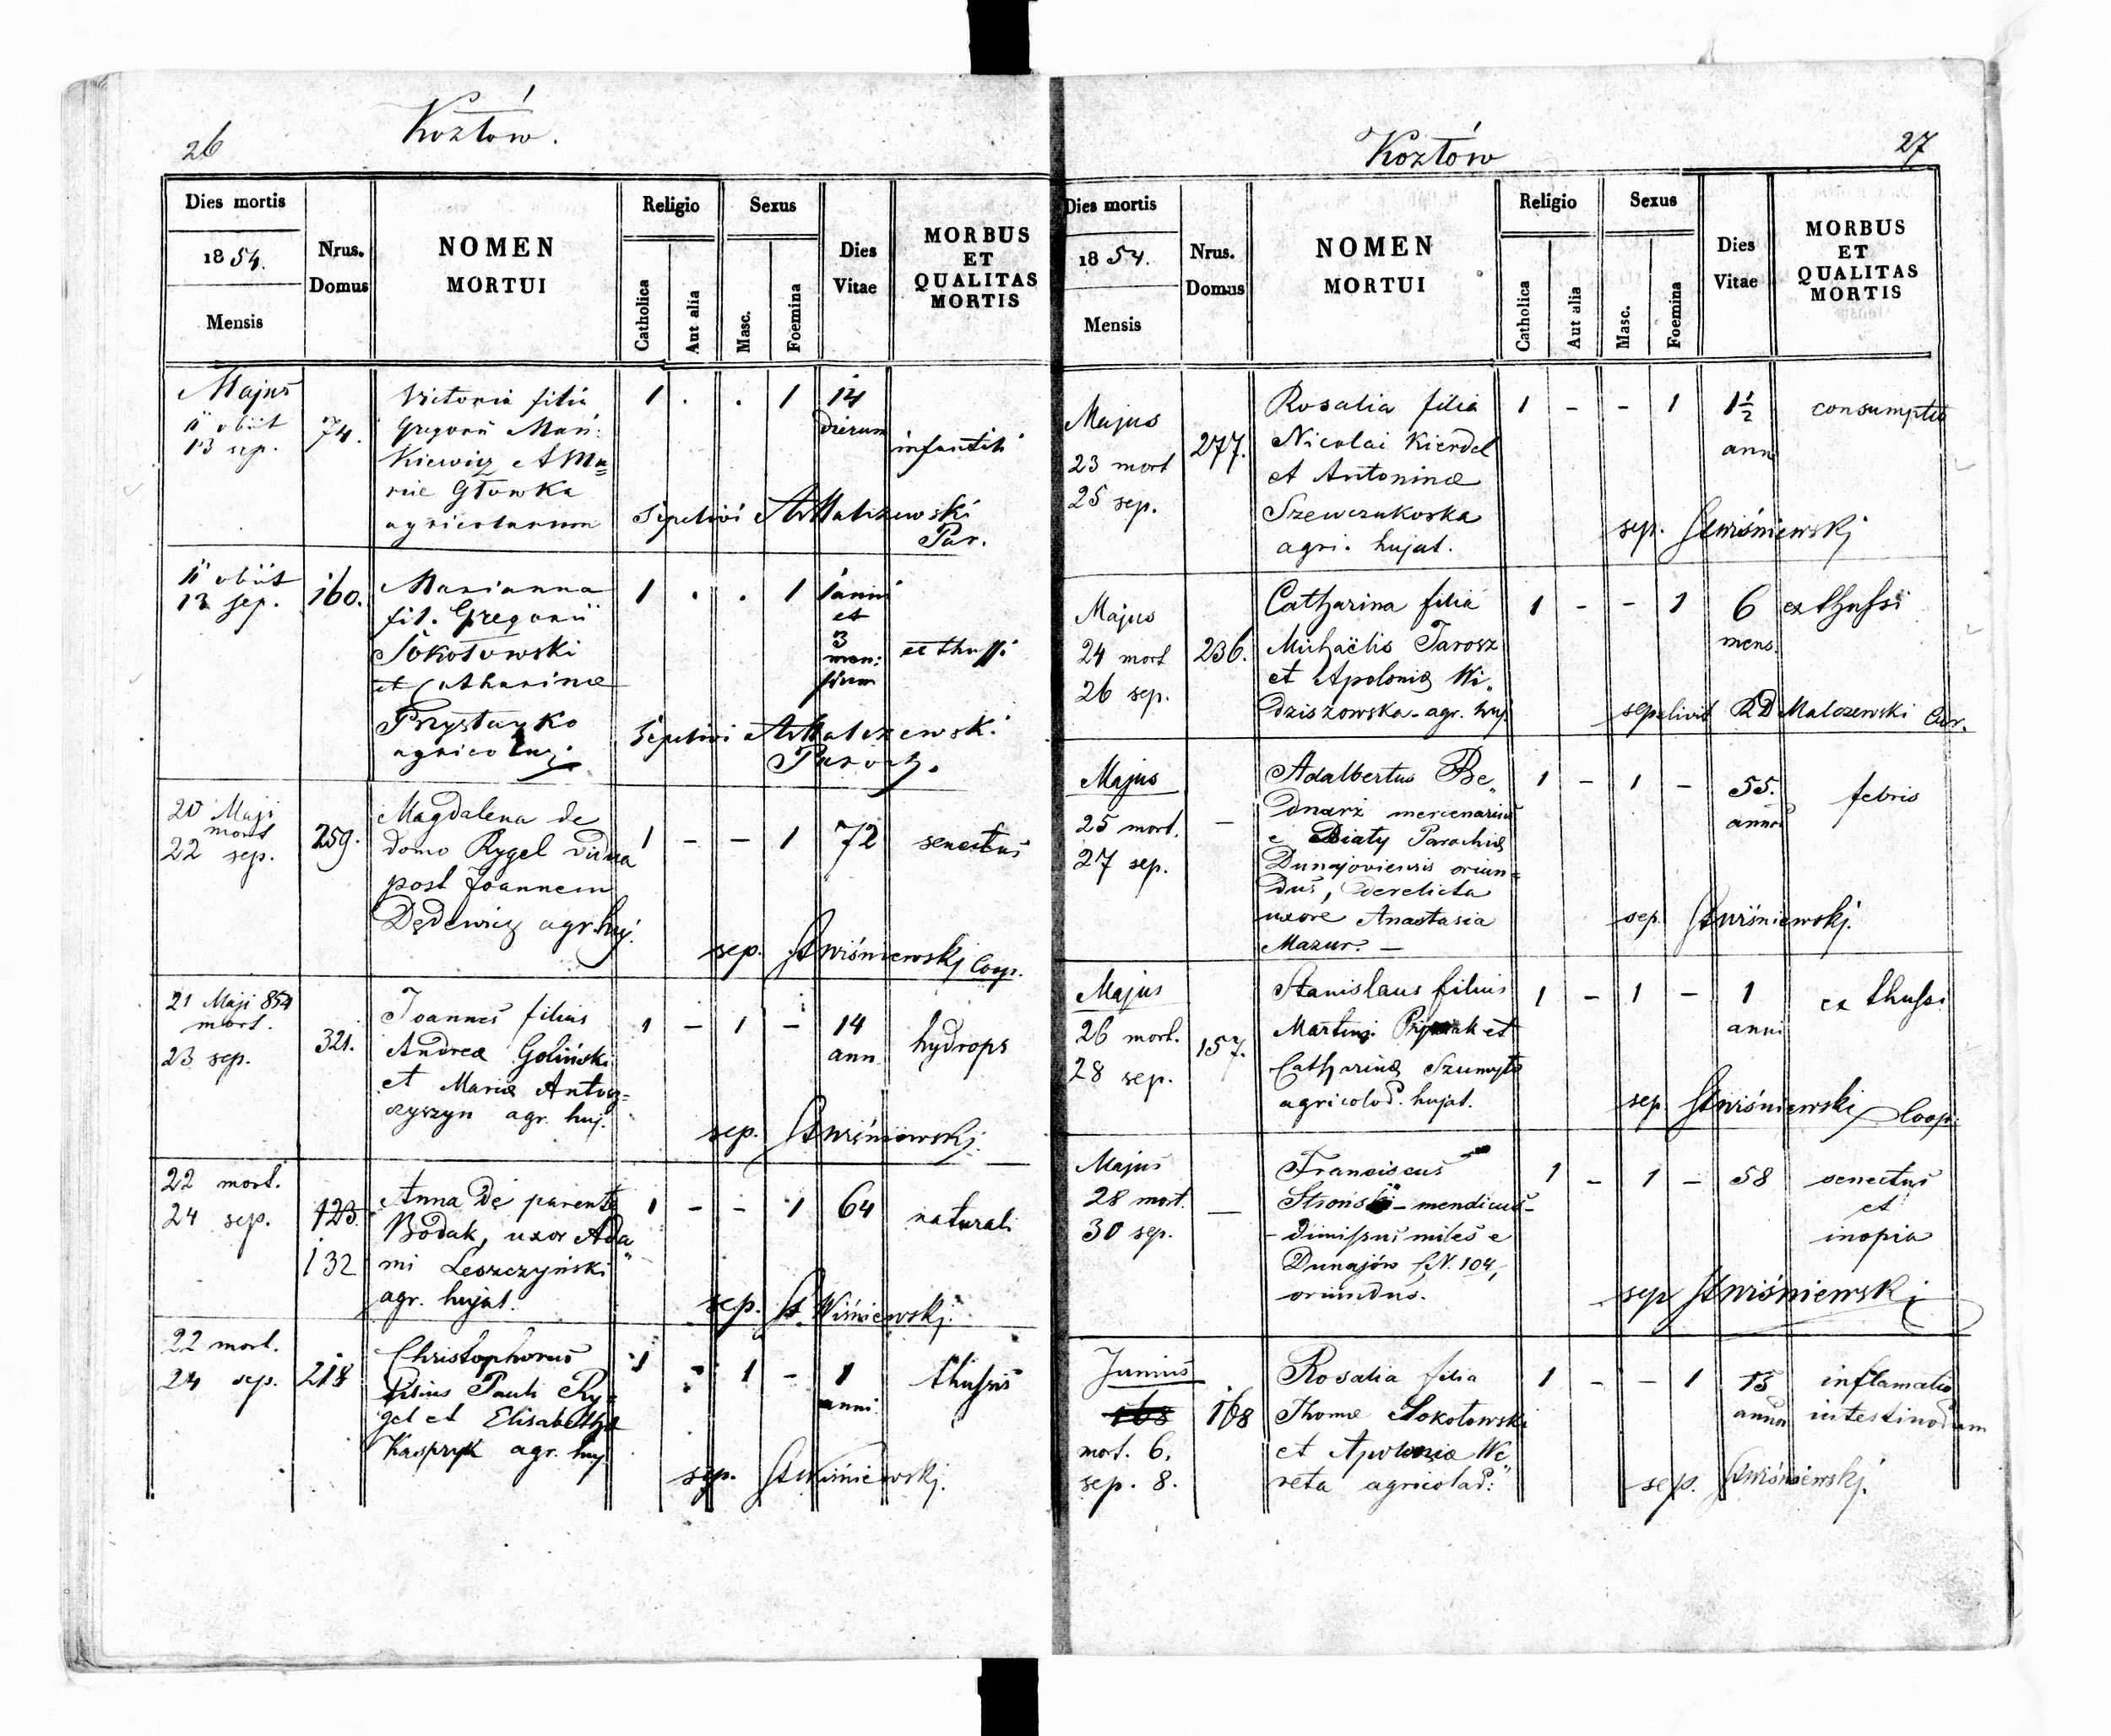 26
Kozłów.
Dies mortis
1854.
Mensis
Nrus.
Domus
NOMEN
MORTUI
Religio
Catholica
Aut alia
Sexus
Masc.
Foemina
Dies
Vitae
MORBUS
ET
QUALITAS
MORTIS
Majus
11 obiit
13 sep.
74.
Victoria filia
Gregorii Mań:
Kiewicz et Ma=
riæ Głowka
agricolarum
1 . . 1
14
dierum
infantili
Sepelivi AMalczewski
Par.
11 obiit
13 sep.
160.
Marianna
fil. Gregorii
Sokołowski
et Catharinæ
Przystayko
1 . . 1
1 anni
et
3
men:
sium
ex thussi
Sepelivi AMalczewski
Paroch.
20 Maji
mort
22 sep.
259.
Magdalena de
domo Rygel vidua
post Joannem
Dędewicz agr. huj.
1 - - 1
72
senectus
sep. StWiśniewskj Coop.
21 Maji 854
mort.
23 sep.
321.
Joannes filius
Andreæ Goliński
et Mariæ Antosz=
czyszyn agr. huj.
1 - 1 -
14
ann
hydrops
sep. StWiśniewskj.
22 mort.
24 sep.
123.
132
Anna de parente
Bodak, uxor Ada„
mi Leszczyński
agr. hujat.
1 - - 1
64
naturali
sep. St. Wiśniewskj.
22 mort.
24 sep.
218
Christophorus
filius Pauli Ry=
gel et Elisabethæ
Kaspryk agr. huj
1 - 1 -
1
anni
thussis
sep. StWiśniewskj.
Kozłów
27
Dies mortis
1854.
Mensis
Nrus.
Domus
NOMEN
MORTUI
Religio
Catholica
Aut alia
Sexus
Masc.
Foemina
Dies
Vitae
MORBUS
ET
QUALITAS
MORTIS
Majus
23 mort
25 sep.
277.
Rosalia filia
Nicolai Kierdel
et Antoninæ
Szewczukoska
agri. hujat.
1 - - 1
1½
ann
consumptio
sep. StWiśniewskj
Majus
24 mort
26 sep.
236.
Catharina filia
Michaëlis Jarosz
et Apoloniæ Wi„
dziszowska - agr. huj
1 - - 1
6
mens.
ex thussi
sepelivit RD Malczewski Cur.
Majus
25 mort.
27 sep.
-
Adalbertus Be„
dnarz mercenarius
e Biały Parochiæ
Dunajoviensis oriun=
dus, derelicta
uxore Anastasia
Mazur. -
1 - 1 -
55.
annor
febris
sep. StWiśniewskj.
Majus
26 mort.
28 sep.
157.
Stanislaus filius
Martini et
Catharinæ Szumyło
agricolar. hujat.
1 - 1 -
1
anni
ex thussi
sep StWiśniewski Coop.
Majus
28 mort.
30 sep.
-
Franciscus
Stroński - mendicus -
- dimissus miles e
Dunajów sN. 104,
oriundus.
1 - 1 -
58
senectus
et
inopia
sep StWiśniewski
Junius
168
mort. 6.
sep. 8.
168
Rosalia filia
Thomæ Sokołowski
et Apoloniæ We„
reta agricolar:
1 - - 1
13
annor
inflamatio
intestinorum
sep. StWiśniewskj.